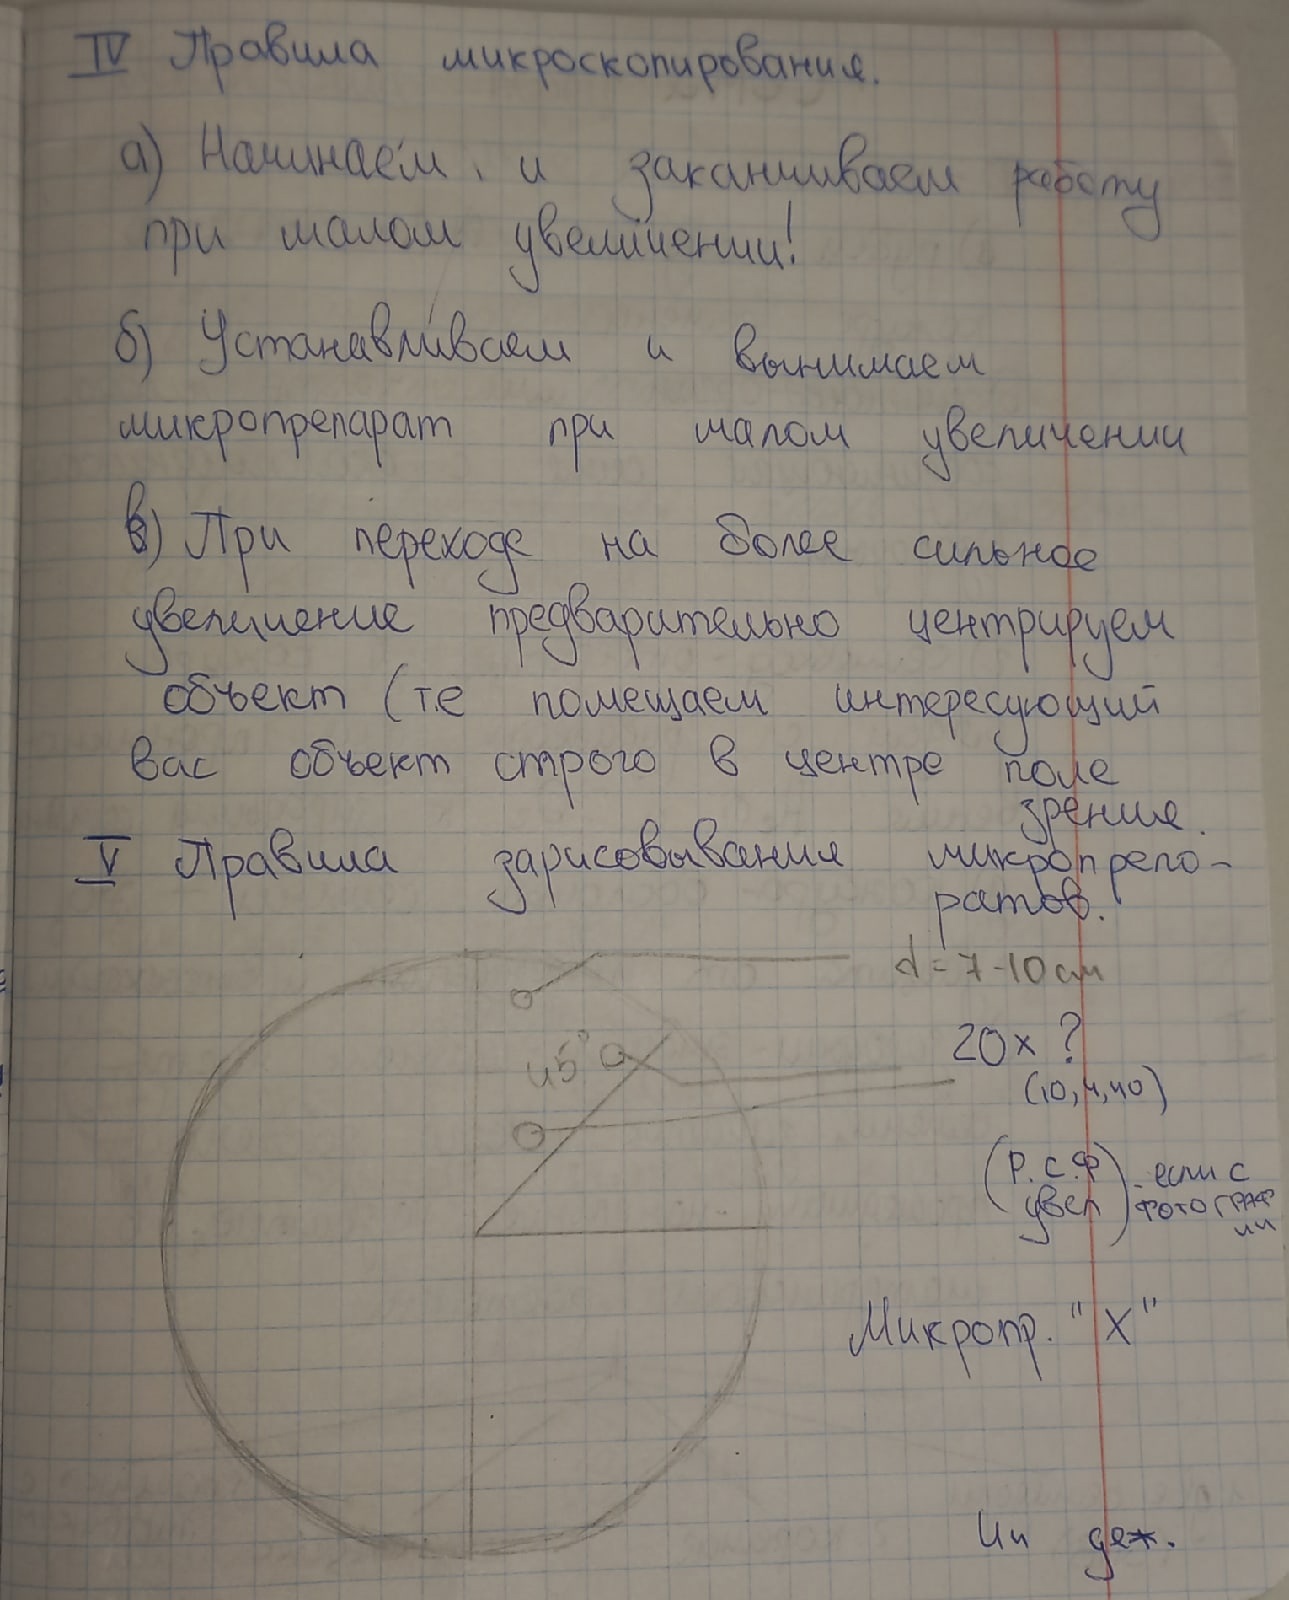 IV Правила микроскопирования.
а) Начинаем и заканчиваем работу
при малом увеличении!
б) Устанавливаем и вынимаем
микропрепарат при малом увеличении
в) При переходе на более сильное
увеличение предварительно центрируем
объект (т.е помещаем интересующий
вас объект строго в центре поле
зрения.
V Правила зарисовывания микропрепо-
ратов.
d = 7-10 см
45°
20х ?
(10, 4, 40)
(Р.С.Ф увел) если с фотографии
Микропр. "Х"
деж.